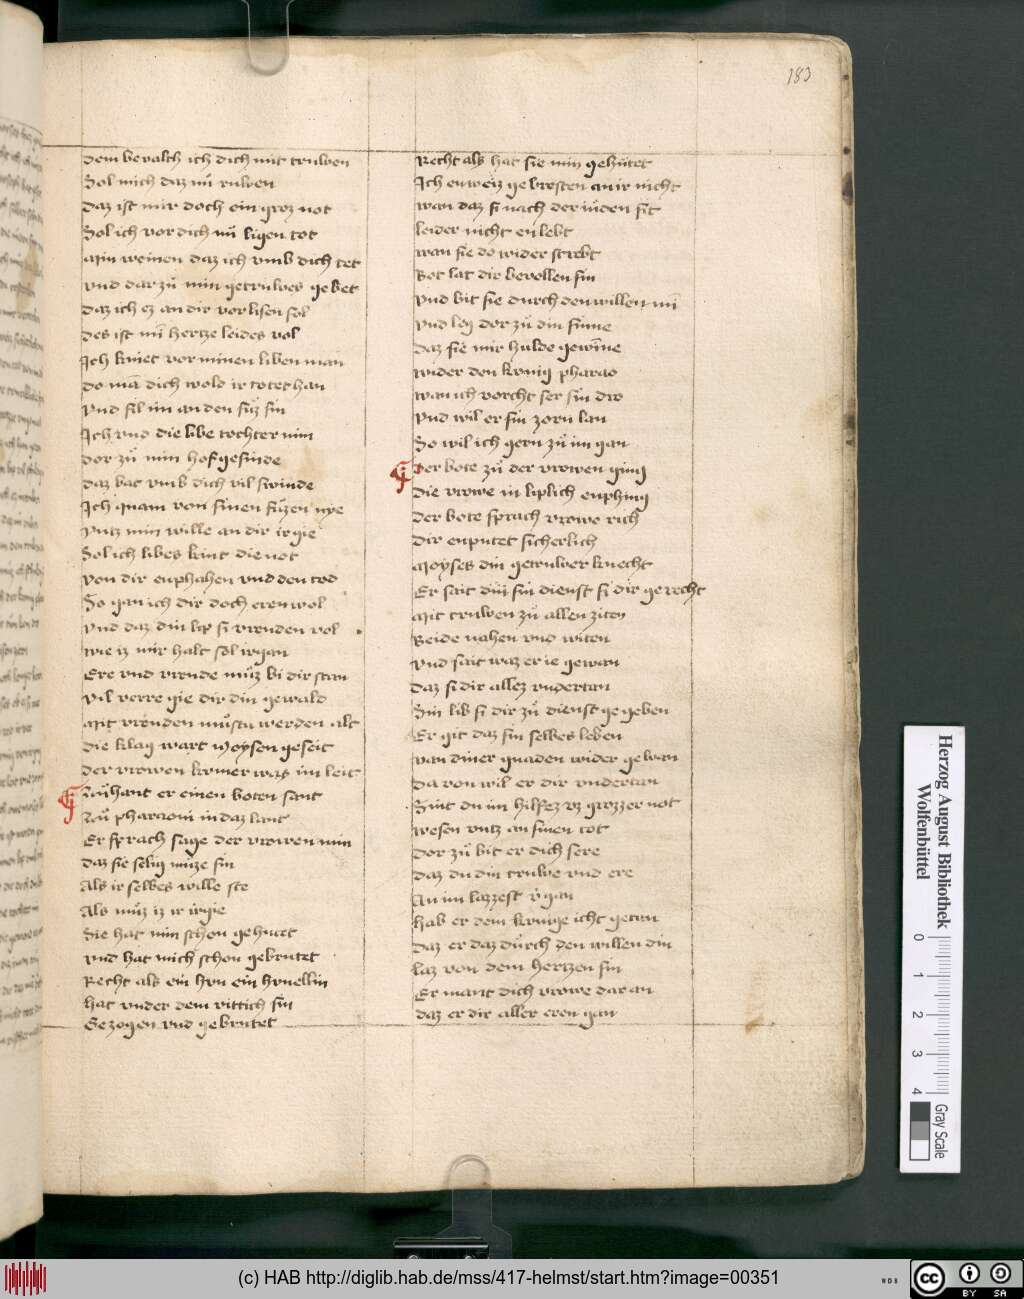 183
Dem bevalch ich dich mit truwen
Sol mich daz nu ruwen
Daz ist mir doch ein groz not
Sol ich vor dich nu ligen tot
Min weinen daz ich vmb dich tet
Vnd dar zu min getruwes gebet
Daz ich ez an dir vorlisen sol
Des ist min hertze leides vol
Ich kniet vor minen liben man
Do man dich wold irtotet han
Vnd fil im an den fuz sin
Ich vnd die libe tochter min
Dor zu min hofgesinde
Daz bat vmb dich vil swinde
Ich quam von sinen fuzen nye
Vntz min wille an dir irgie
Sol ich libes kint die not
Von dir enphahen vnd den tod
So gan ich dir doch eren wol
Vnd daz din lip si vreuden vol
Wie iz mir halt sol irgan
Ere vnd vreude muz bi dir stan
Vil verre gie dir din gewald
Mit vreuden mustu werden alt
Die klag wart Moysen geseit
Der vrowen kumer was im leit
Zuhant er einen boten sant
Zu pharaoni in daz lant
Er sprach sage der vrowen min
Daz sie selig muze sin
Als ir selbes wille ste
Als muz iz ir irgie
Sie hat min schon gehutet
Vnd hat mich schon gebrutet
Recht als ein hun ein hunellin
Hat vnder dem vittich sin
Gezogen vnd gebrutet
Recht als hat sie min gehutet
Ich enweiz gebrosten an ir nicht
Wan daz si nach der iuden sit
Leider nicht en lebt
Wan sie do wider strebt
Bot lat dir bevollen sin
Vnd bit sie durch den willen min
Vnd leg dor zu din sinne
Daz sie mir hulde gewinne
Wider den konig pharao
Wan ich vorcht ser sin dro
Vnd wil er sin zorn lan
So wil ich gern zu im gan
Der bote zu der vrowen ging
Die vrowe in liplich enphing
Der bote sprach vrowe rich
Dir enputet sicherlich
Moyses din getruwer knecht
Er sait din sin dienst si dir gerecht
Mit truwen zu allen ziten
Beide nahen vnd witen
Vnd sait waz er ie gewan
Daz si dir allez vndertan
Sin lib si dir zu dienst gegeben
Er git daz sin selbes leben
Von diner gnaden wider gewan
Da von wil er dir vndertan
Sint du im hilfez vz grozzer not
Wesen vntz an sinen tot
Dor zu bit er dich sere
Daz du din truwe vnd ere
An im lazzest irgan
Hab er dem konige icht getan
Daz er daz durch den willen din
Laz von dem hertzen sin
Er mant dich vrowe dar an
Daz er dir aller eren gan
Herzog August Bibliothek
Wolfenbüttel
0 1 2 3 4
Gray Scale
(c) HAB http://diglib.hab.de/mss/417-helmst/start.htm?image=00351
WDB
cc BY SA